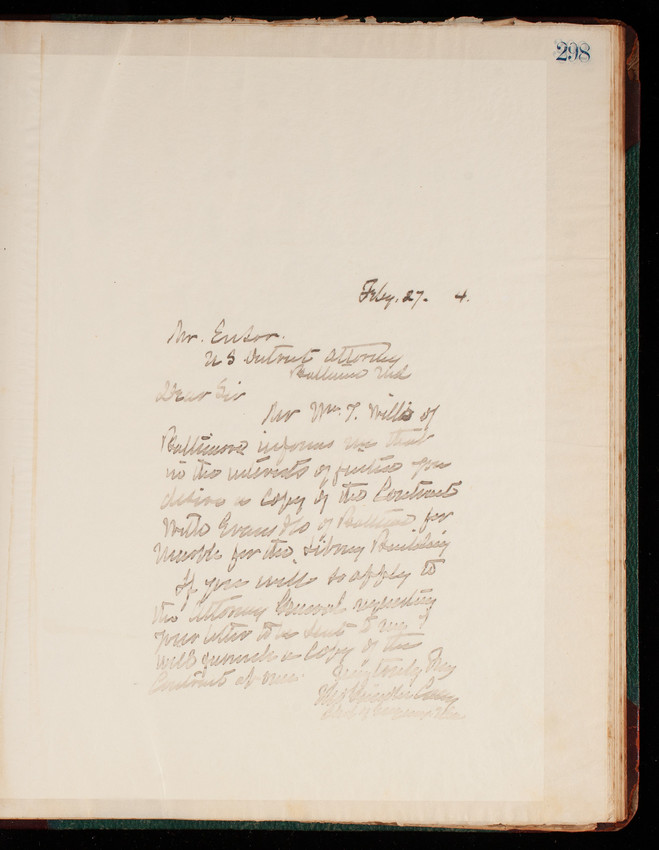 298
Feby. 27. 4.
Mr. Ensor.
U S District Attorney
Baltimore Md
Dear Sir
Mr Wm. T. Willis of
Baltimore informs me that
in the interests of justice you
desire a copy of the Contract
with Evans &Co of Baltimore for
Marble for the Library Building
If you will so apply to
the Attorney General requesting
your letter to be sent to me I
will furnish a copy of the
Contract at once.
Very truly Yrs
Thos Lincoln Casey
Brig. Genl.